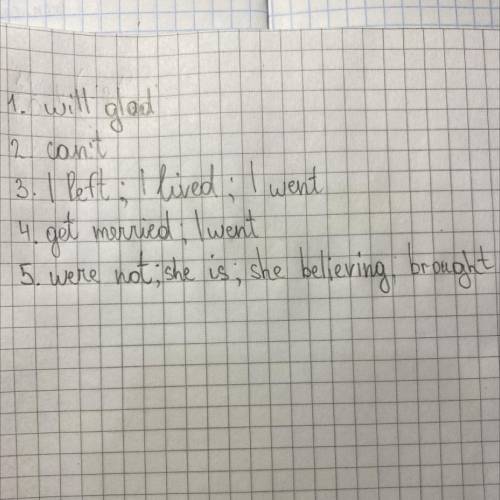 1. will glad
2. can't
3. I left; I lived; I went
4. get merried; I went
5. were not; she is; she believing; brought